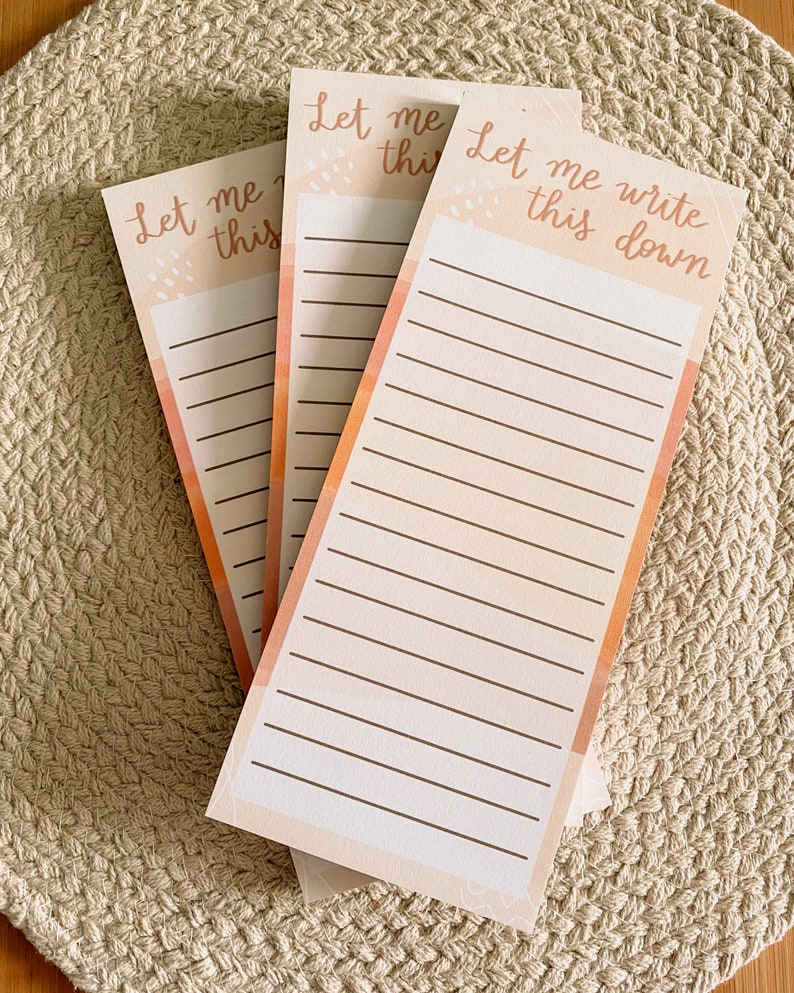 Let me
this
Let me
this
Let me write
this down